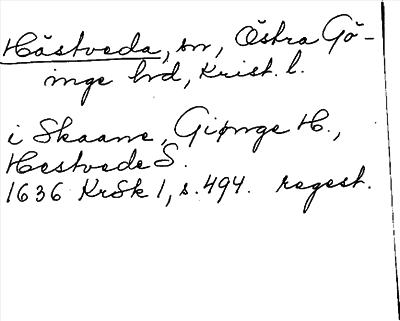 Hästveda, sn, Östra Gö-
inge hd, Krist. l.
i Skaane, Giønge H.,
Hestvede S.
1636 KrSk 1, s. 494. regest.